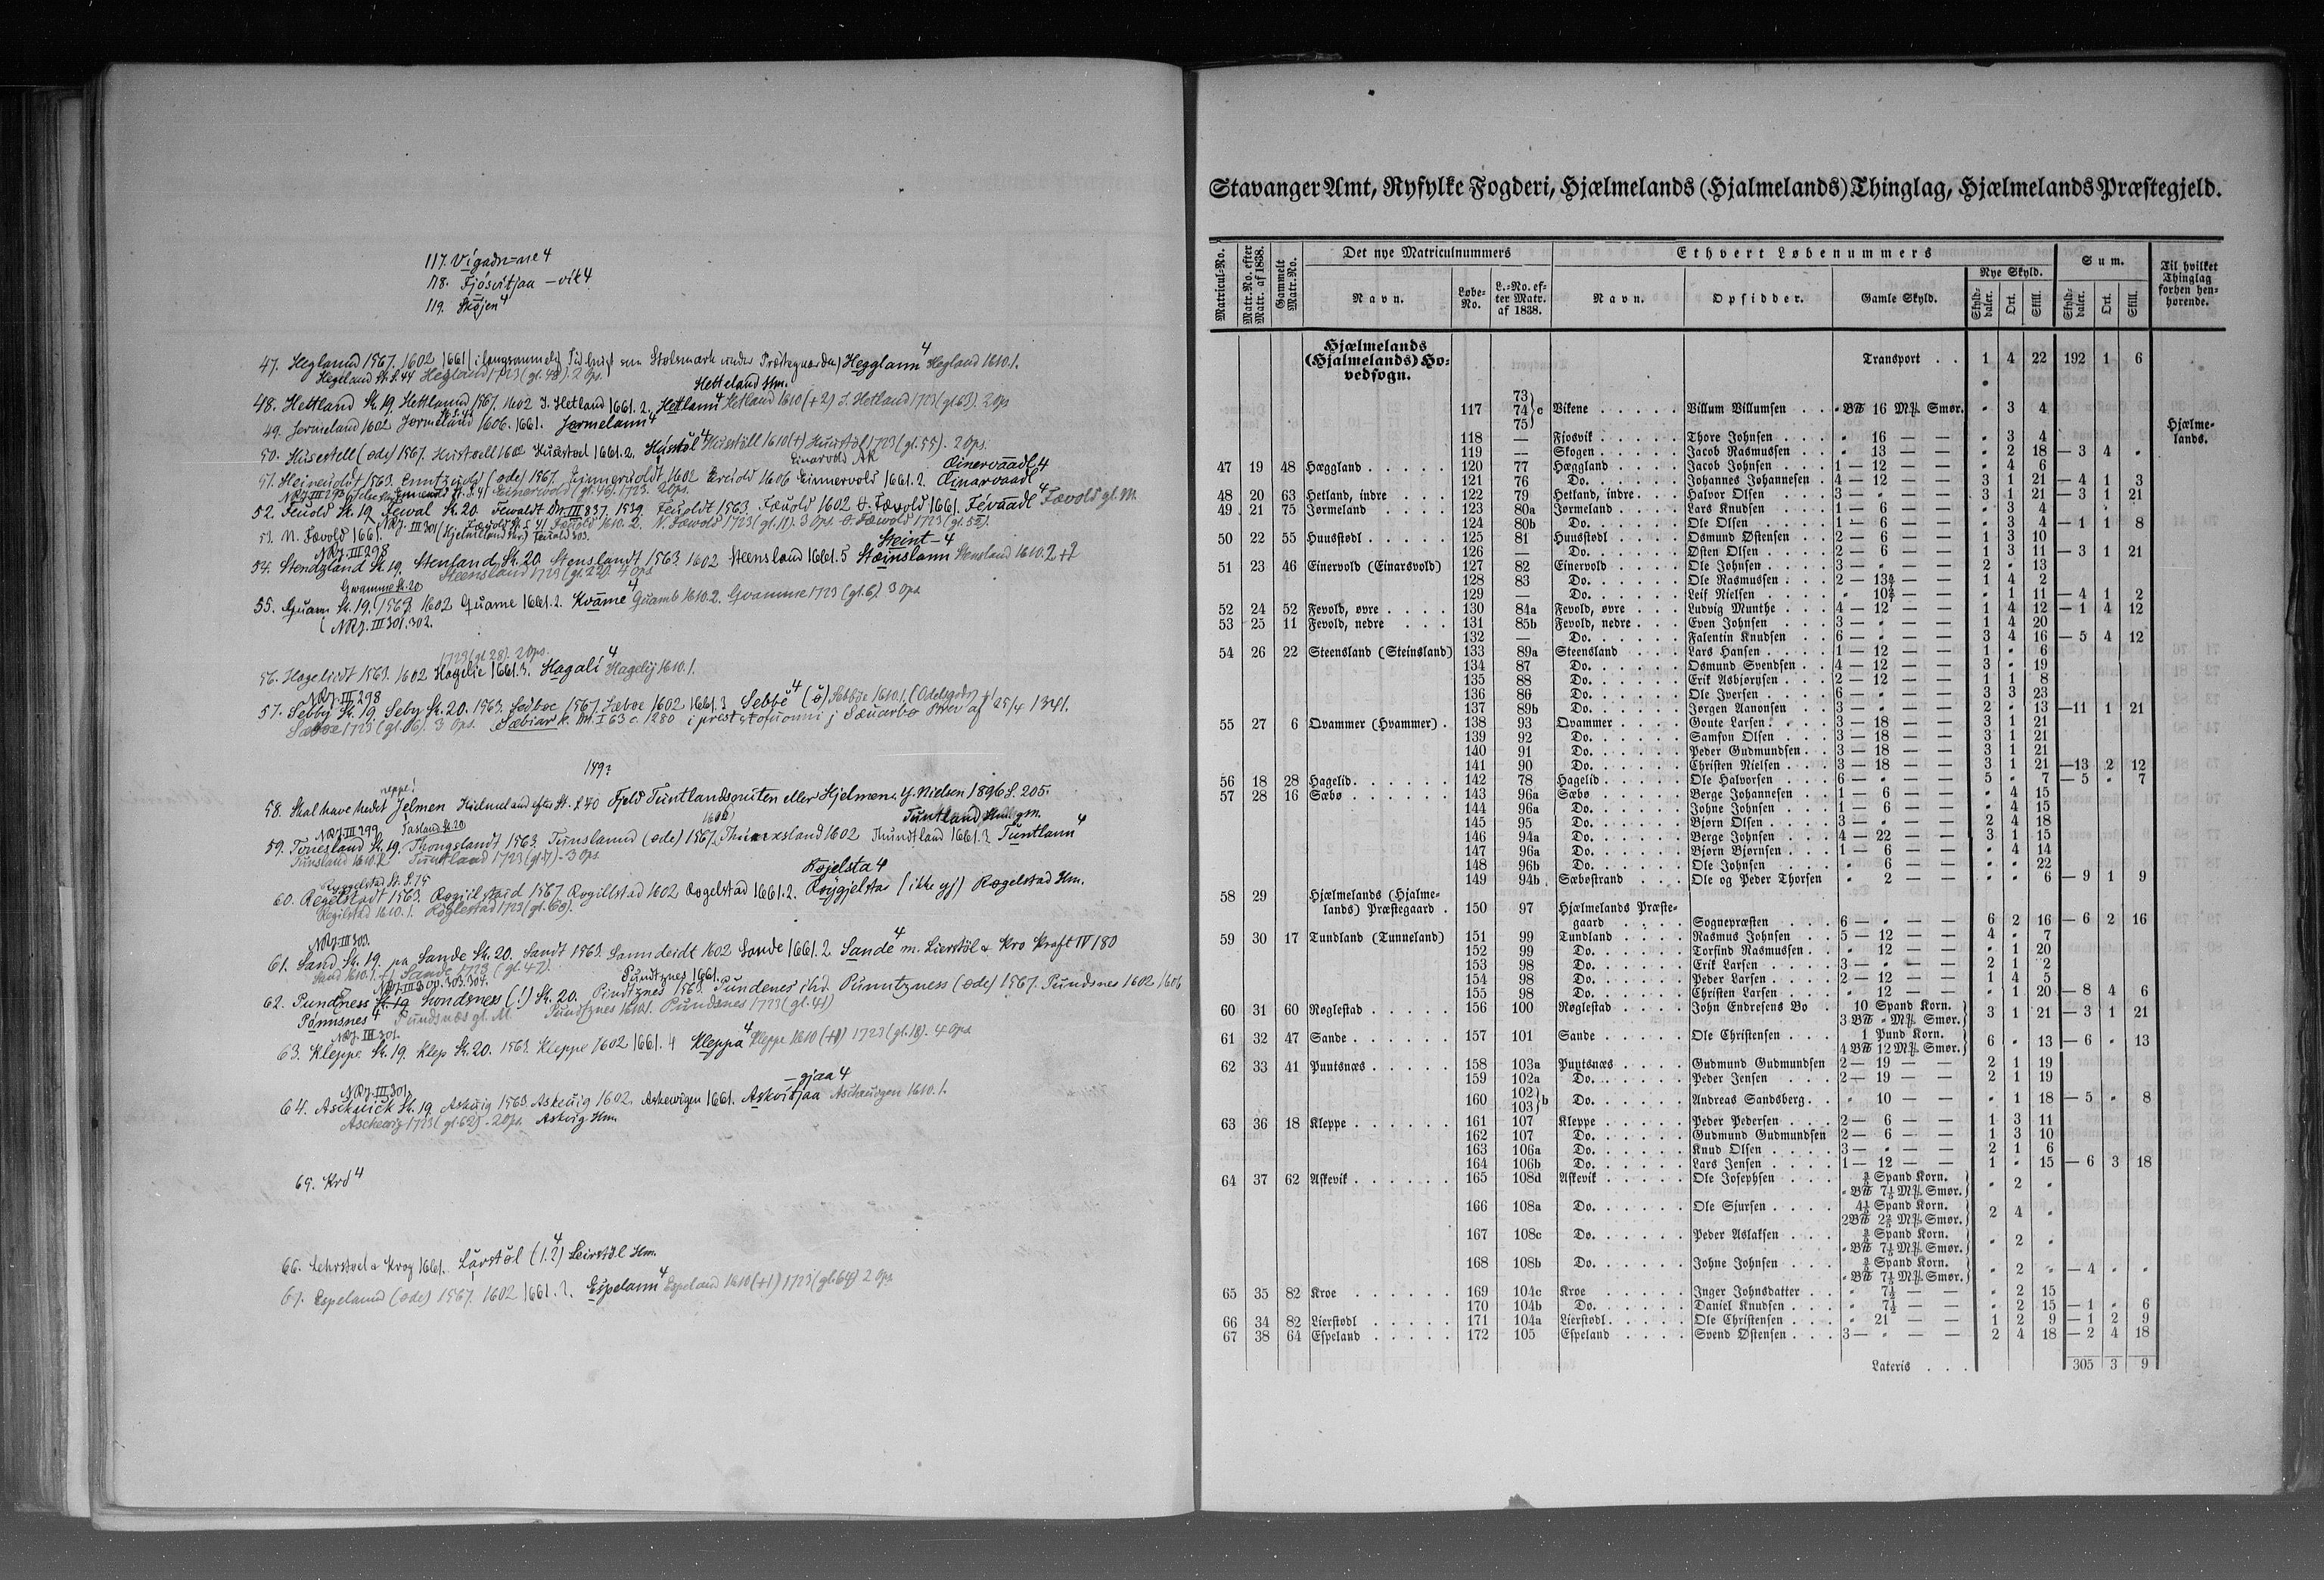 117. Vigadn=ne 4
118. Fjósvitjaa —vik 4
119. Skōjen 4
47. Hegland 1567. 1602. 1661 Hegglann 4 Hegland 1610.1.
Hegeland St. S. 44 Hegland 1723 (gl. 48). 2 Ops.
Hetteland Hm.
48. Hettland Sk. 19. Hettlannd 1567. 1602 I. Hetland 1661. 2. Hetlann 4 Hetland 1610 (+2) I. Hetland 1723 (gl. 63). 2 Ops
49. Jormeland 1602 Jormeland 1606. 1661. Jormelann 4
50. Husestell (øde) 1567. Hustoell 1602 Hustoel 1661.2. Hústöl 4 Husstöll 1610 (+) Hustøl 1723 (gl. 55). 2 Ops.
Einarvold AK
Øinervaadl 4
51. 1563. (øde) 1567. 1602 1606 Einnervold 1661. 2. Øinarvaadl
52. Feuold Sk. 19 Fewal Sk. 20. Fewaldt DN. III 837. 1539. Feuoldt 1563. Fæuold 1602 Ø. Fævold 1661. Févaadl 4 Fævold gl. M.
53. N. Fævold 1661.
NRJ. III 298
Steint-4
54. Stendzland Sk. 19. Stenland Sk. 20. Stenslandt 1563. 1602 Steensland 1661. 5 Stæinslann Stensland 1610. 2 +2
Steensland 1723 (gl. 22). 4 Ops
Gwamme Sk. 20
55. Quam Sk. 19. 1563. 1602 Quame 1661. 2. Kvāme 4 Quamb 1610. 2. Qvamme 1723 (gl. 6) 3 Ops
NRJ. III 301. 302.
1723 (gl. 28). 2 Ops.
56. Hagelidt 1563. 1602 Hagelie 1661. 3. Hagali 4 Hagelij 1610. 1.
NRJ. III 298
57. Sebby Sk. 19. Seby Sk. 20. 1563. Sedboe 1567. Sæboe 1602 1661. 3 Sebbö 4 (ö) Sebbøe 1610. 1. (Odelsgods)
Sæboe 1723 (gl. 16). 3 Ops. Sæbiar k. DN. I 63 c. 1280 i preststofuonni i Sæuarbø Brev af 25/4 1341.
149?
neppe!
58. Skal have hedet Jelmen Hielmeland efter St. S. 70 Fjeld Tuntlandsnuten eller Hjelmen. Y. Nielsen 1896 S. 205.
NRJ. III 299 Tasland Sk. 20
Tuntland gm.
59. Tunesland Sk. 19. Thongslandt 1563. Tunslannd (øde) 1567. 1602 Thundtland 1661. 3 Tuntlann 4
Tunsland 1610. 2 Tuntland 1723 (gl. 17) - 3 Ops.
Røjelsta 4
Røggelstad St. S. 15
60. Regelstadt 1563. 1567 Rogillstad 1602 Rogelstad 1661. 2. Röygjelstas (ikke gj) Røgelstad Hm.
Regilstad 1610. 1. Røglestad 1723 (gl. 60).
NRJ. III 303.
61. Sand Sk. 19. pa Sande Sk. 20. Sandt 1563. Sanndeidt 1602 Sande 1661. 2 Sande 4 m. Lierstöl & Kro Kraft IV 180
Sand 1610. 1. Sande 1723 (gl. 47).
Pundtznes 1661.
62. Pundzness Sk. 19 hondsness (!) Sk. 20. Pindtznes 1563. Pundenes ibd. Punnitzness (øde) 1567. Pundsnes 1602. 1606
Pønnsnes 4 Pundsnæs gl. M. Pundtznes 1610. 1. Pundsnes 1723 (gl. 41)
NRJ. III 301.
63. Kleppe Sk. 19. Klep Sk. 20. 1563. Kleppe 1602 1661. 4 Kleppa 4 Kleppe 1610 (+1) 1723 (gl. 18). 4 Ops
—gjaa 4
NRJ. III 301.
64. Askuick Sk. 19 Askuig 1563 Askeuig 1602. Askewigen 1661. Askvitjaa Ascheuigen 1610. 1.
Aschevig 1723 (gl. 62). 2 Ops. Askvig Hm.
65. Kro 4
66. Lehrstoel & Krog 1661. Lärstöl (1.2) 4 Leirstöl Hm.
67. Espelannd (øde) 1567. 1602 1661. 2. Espelann 4 Espeland 1610 (+1) 1723 (gl. 64) 2 Ops.
Stavanger Amt, Ryfylke Fogderi, Hjælmelands (Hjalmelands) Thinglag, Hjælmelands Præstegjeld.
Matricul-No. Matr.No. efter Matr. af 1838. Gammelt Matr.No. Det nye Matriculnummers Ethvert Løbenummers Sum. Til hvilket Thinglag forhen henhørende.
Navn. Løbe-No. L.-No. efter Matr. af 1838. Navn. Opsidder. Gamle Skyld. Nye Skyld. Skylddaler. Ort. Skill. Skylddaler. Ort. Skill.
Hjælmelands (Hjalmelands) Hovedsogn. Transport . . 1 4 22 192 1 6
117 73 74 75 } c Vikene Villum Villumsen " B℔ 16 Mrk Smør. " 3 4
Hjælmelands.
118 — Fjosvik Thore Johnsen " 16 — — " 3 4
119 — Skogen Jacob Rasmussen " 13 — — " 2 18 — 3 4 "
47 19 48 Hæggland 120 77 Hæggland Jacob Johnsen 1 — 12 — — " 4 6
121 76 Do. Johannes Johannesen 4 — 12 — — 3 1 21 — 4 1 3
48 20 63 Hetland, indre 122 79 Hetland, indre Halvor Olsen 3 — " — — 3 1 21 — 3 1 21
49 21 75 Jørmeland 123 80a Jørmeland Lars Knudsen 1 — 6 — — " 3 4
124 80b Do. Ole Olsen 1 — 6 — — " 3 4 — 1 1 8
50 22 55 Huusstødl 125 81 Huusstødl Osmund Østensen 2 — 6 — — 1 3 10
126 — Do. Østen Olsen 2 — 6 — — 1 3 11 — 3 1 21
51 23 46 Einervold (Einarsvold) 127 82 Einervold Ole Johnsen 3 — " — — 2 " 13
128 83 Do. Ole Rasmussen 2 — 13 — — 1 4 2
129 — Do. Leif Nielsen " 10 — — " 1 11 — 4 1 2
52 24 52 Fevold, øvre 130 84a Fevold, øvre Ludvig Munthe 4 — 12 — — 1 4 12 — 1 4 12
53 25 11 Fevold, nedre 131 85b Fevold, nedre Even Johnsen 3 — " — — 1 4 20
132 — Do. Falentin Knudsen 6 — " — — 3 4 16 — 5 4 12
54 26 22 Steensland (Steinsland) 133 89a Steensland Lars Hansen 1 — 12 — — 1 " 6
134 87 Do. Osmund Svendsen 4 — 12 — — 3 " 19
135 88 Do. Erik Asbjørnsen 2 — 12 — — 1 1 8
136 86 Do. Ole Iversen 6 — " — — 3 3 23
137 89b Do. Jørgen Aanonsen 3 — " — — 2 " 13 — 11 1 21
55 27 6 Qvammer (Hvammer) 138 93 Qvammer Goute Larsen 3 — 18 — — 3 1 21
139 92 Do. Samson Olsen 3 — 18 — — 3 1 21
140 91 Do. Peder Gudmundsen 3 — 18 — — 3 1 21
141 90 Do. Christen Nielsen 3 — 18 — — 3 1 21 — 13 2 12
56 18 28 Hagelid 142 78 Hagelid Ole Halvorsen 6 — " — — 5 " 7 — 5 " 7
57 28 16 Sæbø 143 96a Sæbø Berge Johannesen 1 — 6 — — " 4 15
144 96a Do. Johne Johnsen 1 — 6 — — " 4 15
145 95 Do. Bjørn Olsen 3 — " — — 2 4 18
146 94a Do. Berge Johnsen 4 — 22 — — 3 1 15
147 96a Do. Bjørn Bjørnsen 1 — 6 — — " 4 14
148 96b Do. Ole Johnsen " 6 — — " " 22
149 94b Sæbøstrand Ole og Peder Thorsen " 2 — — " " 6 — 9 1 9
58 29 Hjælmelands (Hjalmelands) Præstegaard 150 97 Hjælmelands Præstegaard Sognepræsten 6 — " — — 6 2 16 — 6 2 16
59 30 17 Tundland (Tunneland) 151 99 Tundland Rasmus Johnsen 5 — 12 — — 4 " 7
152 99 Do. Torfind Rasmussen " 12 — — " 1 20
153 98 Do. Erik Larsen 3 — " — — 2 1 2
154 98 Do. Peder Larsen 2 — 12 — — 1 4 5
155 98 Do. Christen Larsen " 12 — — " 1 20 — 8 4 6
60 31 60 Røglestad 156 100 Røglestad John Endresens Bo 10 Spand Korn. 3 B℔ " Mrk Smør. 3 1 21 — 3 1 21
61 32 47 Sande 157 101 Sande Ole Christensen 1 Pund Korn. 4 B℔ 12 Mrk Smør. 6 " 13 — 6 " 13
62 33 41 Puntsnæs 158 103a Puntsnæs Gudmund Gudmundsen 2 — 19 — — 2 1 19
159 102a Do. Peder Jensen 2 — 19 — — 2 1 19
160 102 103 } b Do. Andreas Sandsberg " 10 — — " 1 18 — 5 " 8
63 36 18 Kleppe 161 107 Kleppe Peder Pedersen 2 — 6 — — 1 3 11
162 107 Do. Gudmund Gudmundsen 2 — 6 — — 1 3 10
163 106a Do. Knud Olsen 3 — " — — 2 1 6
164 106b Do. Lars Jensen 1 — 12 — — 1 " 15 — 6 3 18
64 37 62 Askevik 165 108d Askevik Ole Josephsen Spand Korn. " B℔ 7½ Mrk Smør. " 2 "
166 108a Do. Ole Sjursen 4½ Spand Korn. 2 B℔ Mrk Smør. 2 4 "
167 108c Do. Peder Aslaksen Spand Korn. " B℔ 7½ Mrk Smør. " 2 "
168 108b Do. Johne Johnsen Spand Korn. " B℔ 7½ Mrk Smør. " 2 " — 4 " "
65 35 82 Kroe 169 104c Kroe Inger Johnsdatter " 7½ — — " 2 15
170 104b Do. Daniel Knudsen " 7½ — — " 2 15 — 1 " 6
66 34 82 Lierstødl 171 104a Lierstødl Ole Christensen " 21 — — 1 2 9 — 1 2 9
67 38 64 Espeland 172 105 Espeland Svend Østensen 3 — " — — 2 4 18 — 2 4 18
Lateris . . . 305 3 9